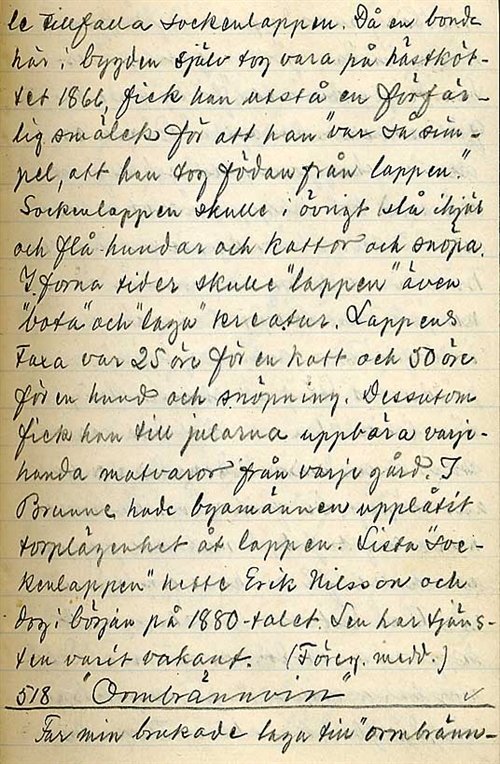 le tillfalla sockenlappen. Då en bonde
här i bygden själv tog vara på hästköt-
tet 1866, fick han utstå en förfär-
lig smälek för att han "var så sim-
pel, att han tog födan från lappen."
Sockenlappen skulle i övrigt slå ihjäl
och flå hundar och kattor och snöpa.
I forna tider skulle "lappen" även
"bota" och "laga" kreatur. Lappens
taxa var 25 öre för en katt och 50 öre
för en hund och snöpning. Dessutom
fick han till jularna uppbära varje-
handa matvaror från varje gård. I
Brunne hade byamännen upplåtit
torplägenhet åt lappen. Sista "soc-
kenlappen" hette Erik Nilsson och
dog i början på 1880-talet. Sen har tjäns-
ten varit vakant. (Föreg. medd.)
518 "Ormbrännvin"
Far min brukade laga till "ormbränn-